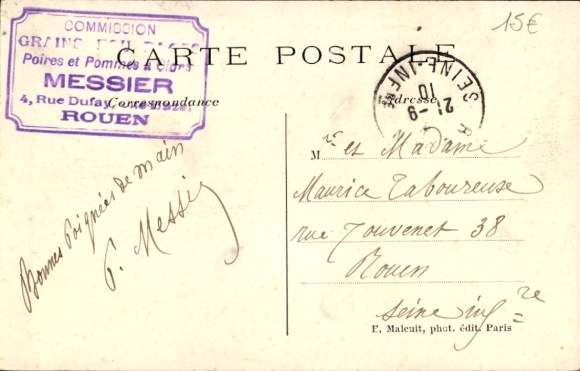 15€
COMMISSION
GRAINS
Poires et Pommes à Cidre
MESSIER
4, Rue Dufay
ROUEN
CARTE POSTALE
Correspondance
Adresse
SEINE-INFRE
21-9
10
Bonnes Poignées de main
P. Messier
Mr et Madame
Maurice Taboureuse
rue Jouvenet 38
Rouen
Seine infre
F. Malcuit, phot. édit. Paris